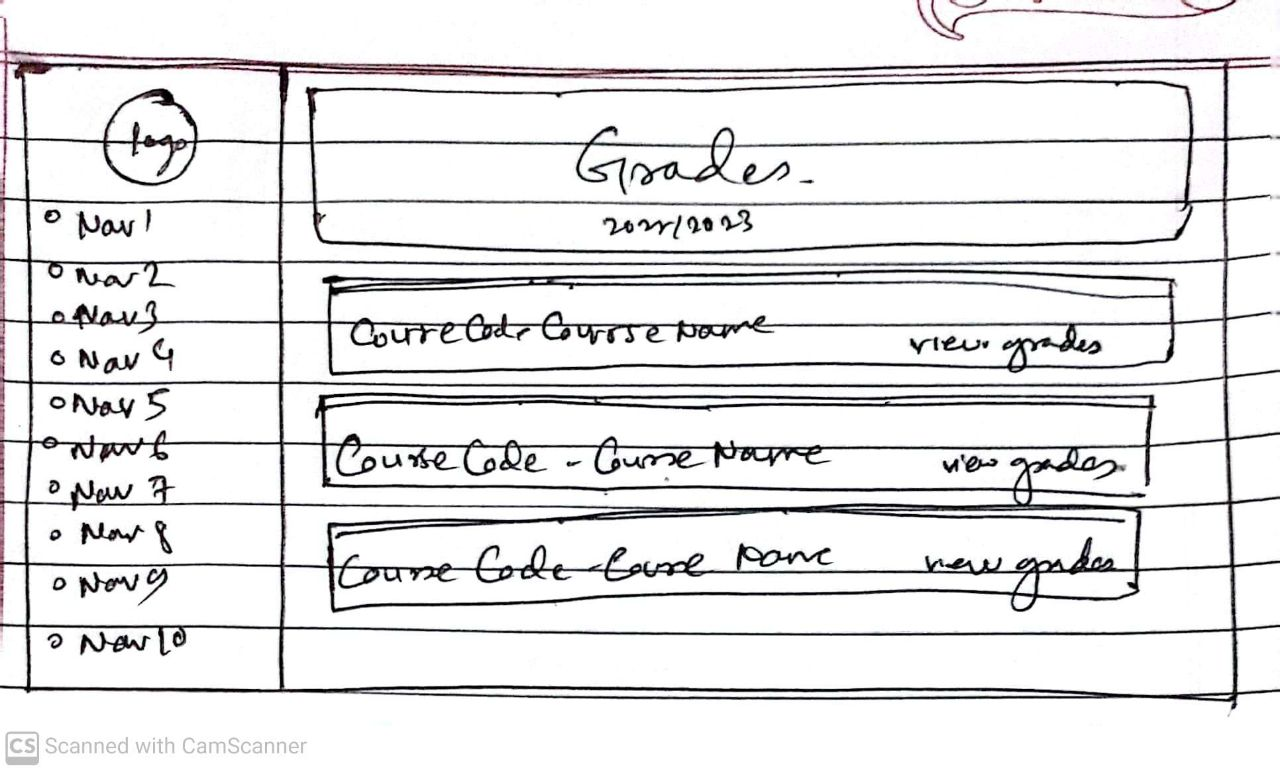 logo
Nav 1
Nav 2
Nav 3
Nav 4
Nav 5
Nav 6
Nav 7
Nav 8
Nav 9
Nav 10
Grades.
2022/2023
Course Code Course Name view grades
Course Code - Course Name view grades
Course Code - Course Name view grades
CS Scanned with CamScanner